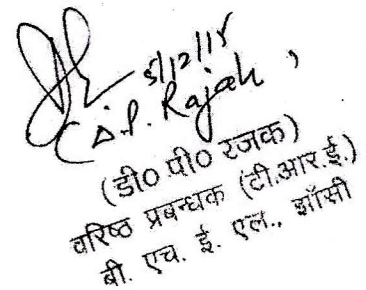 5/12/18
(D.P. Rajak,
(डी0 पी0 रजक)
वरिष्ठ प्रबन्धक (टी.आर.ई.)
बी. एच. ई. एल., झाँसी